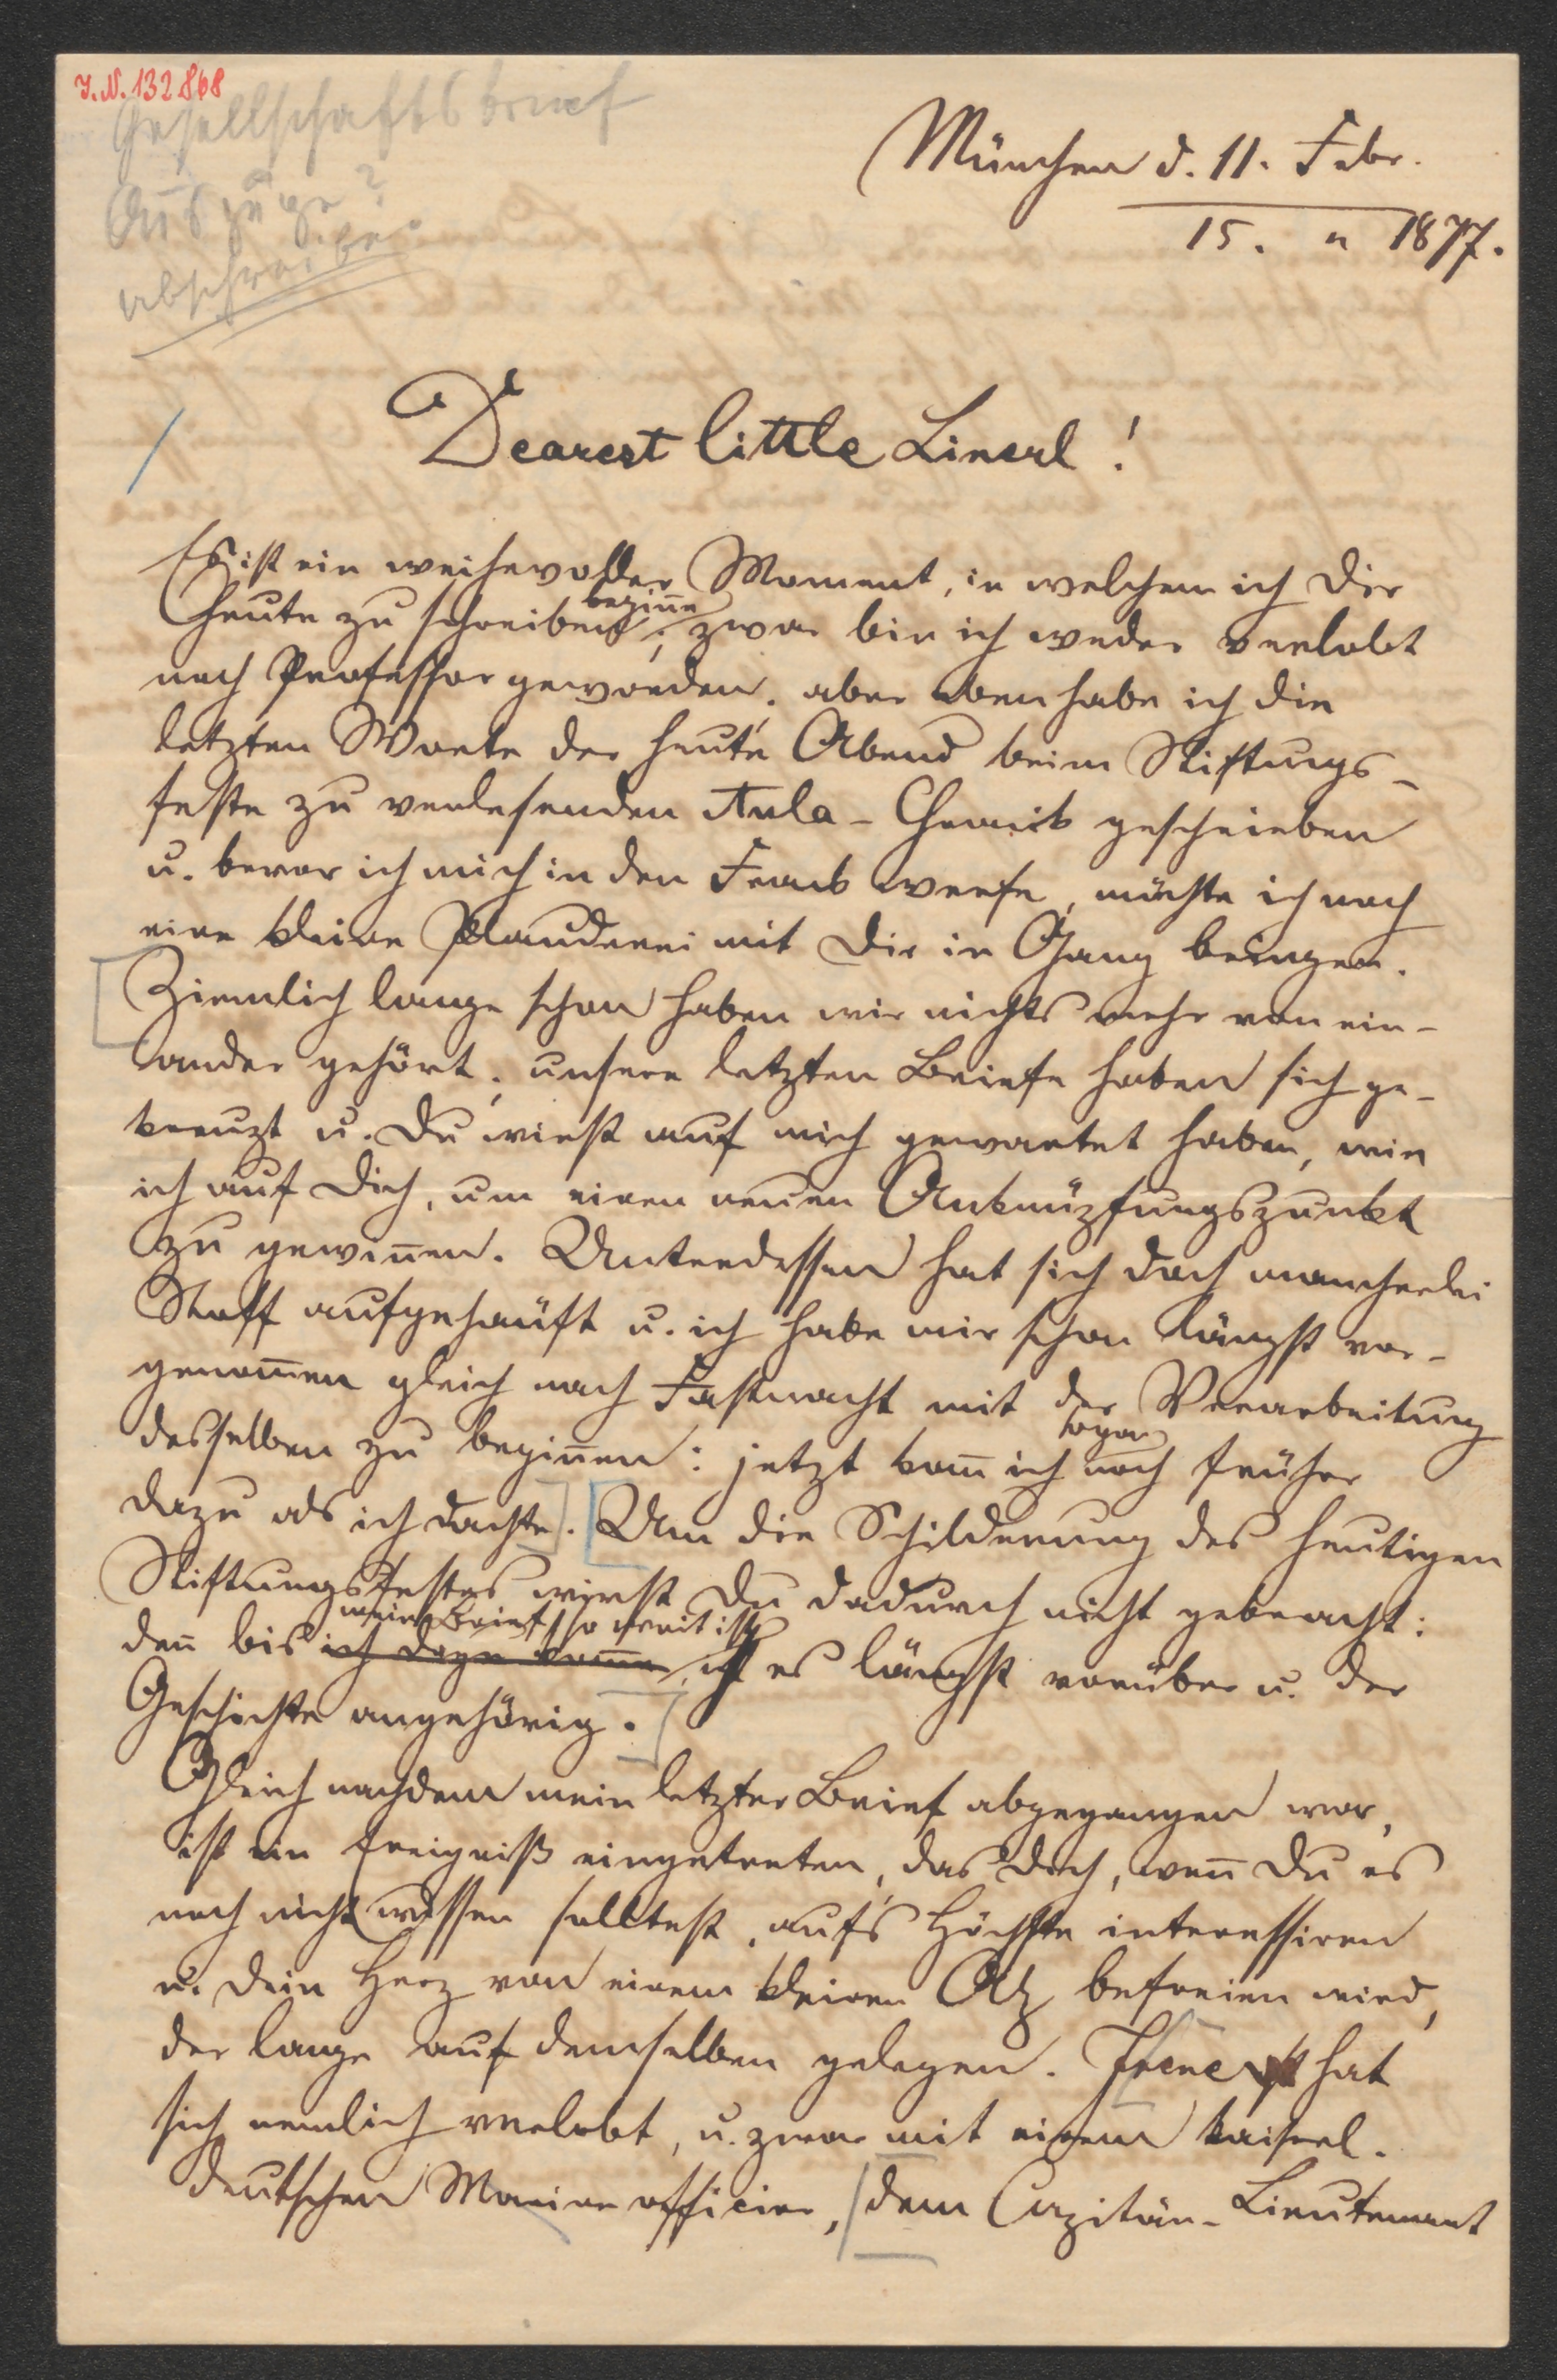 J.N. 132868
Gesellschaftsbrief
Auszüge?
abschreiben
München d. 11. Febr.
15. " 1877.
Dearest little Linerl!
Es ist ein weihevoller Moment, in welchem ich Dir
beginne
heute zu schreiben; zwar bin ich weder verlobt
noch Professor geworden; aber eben habe ich die
letzten Worte der heute Abend beim Stiftungs-
feste zu verlesenden Aula-Chronik geschrieben
u. bevor ich mich in den Frack werfe, möchte ich noch
eine kleine Plauderei mit Dir in Gang bringen.
Ziemlich lange schon haben wir nichts mehr von ein-
ander gehört; unsere letzten Briefe haben sich ge-
kreuzt u. Du wirst auf mich gewartet haben, wie
ich auf Dich, um einen neuen Anknüpfungspunkt
zu gewin̄en. Unterdessen hat sich doch mancherlei
Stoff aufgehäuft u. ich habe mir schon längst vor-
genom̄en gleich nach Fastnacht mit der Verarbeitung
sogar
desselben zu begin̄en: jetzt kom̄ ich noch früher
dazu als ich dachte. Um die Schilderung des heutigen
Stiftungsfestes wirst Du dadurch nicht gebracht:
mein Brief so weit ist
den̄ bis ich dazu kom̄e, ist es längst vorüber u. der
Geschichte angehörig.
Gleich nachdem mein letzter Brief abgegangen war,
ist ein Ereigniß eingetreten, das Dich, wen̄ Du es
noch nicht wissen solltest, auf's Höchste interessiren
u. Dein Herz von einem kleinen Alp befreien wird,
der lange auf demselben gelegen. Irene hat
sich nemlich verlobt, u. zwar mit einem kaiserl.
deutschen Marineofficier, dem Capitän-Lieutenant